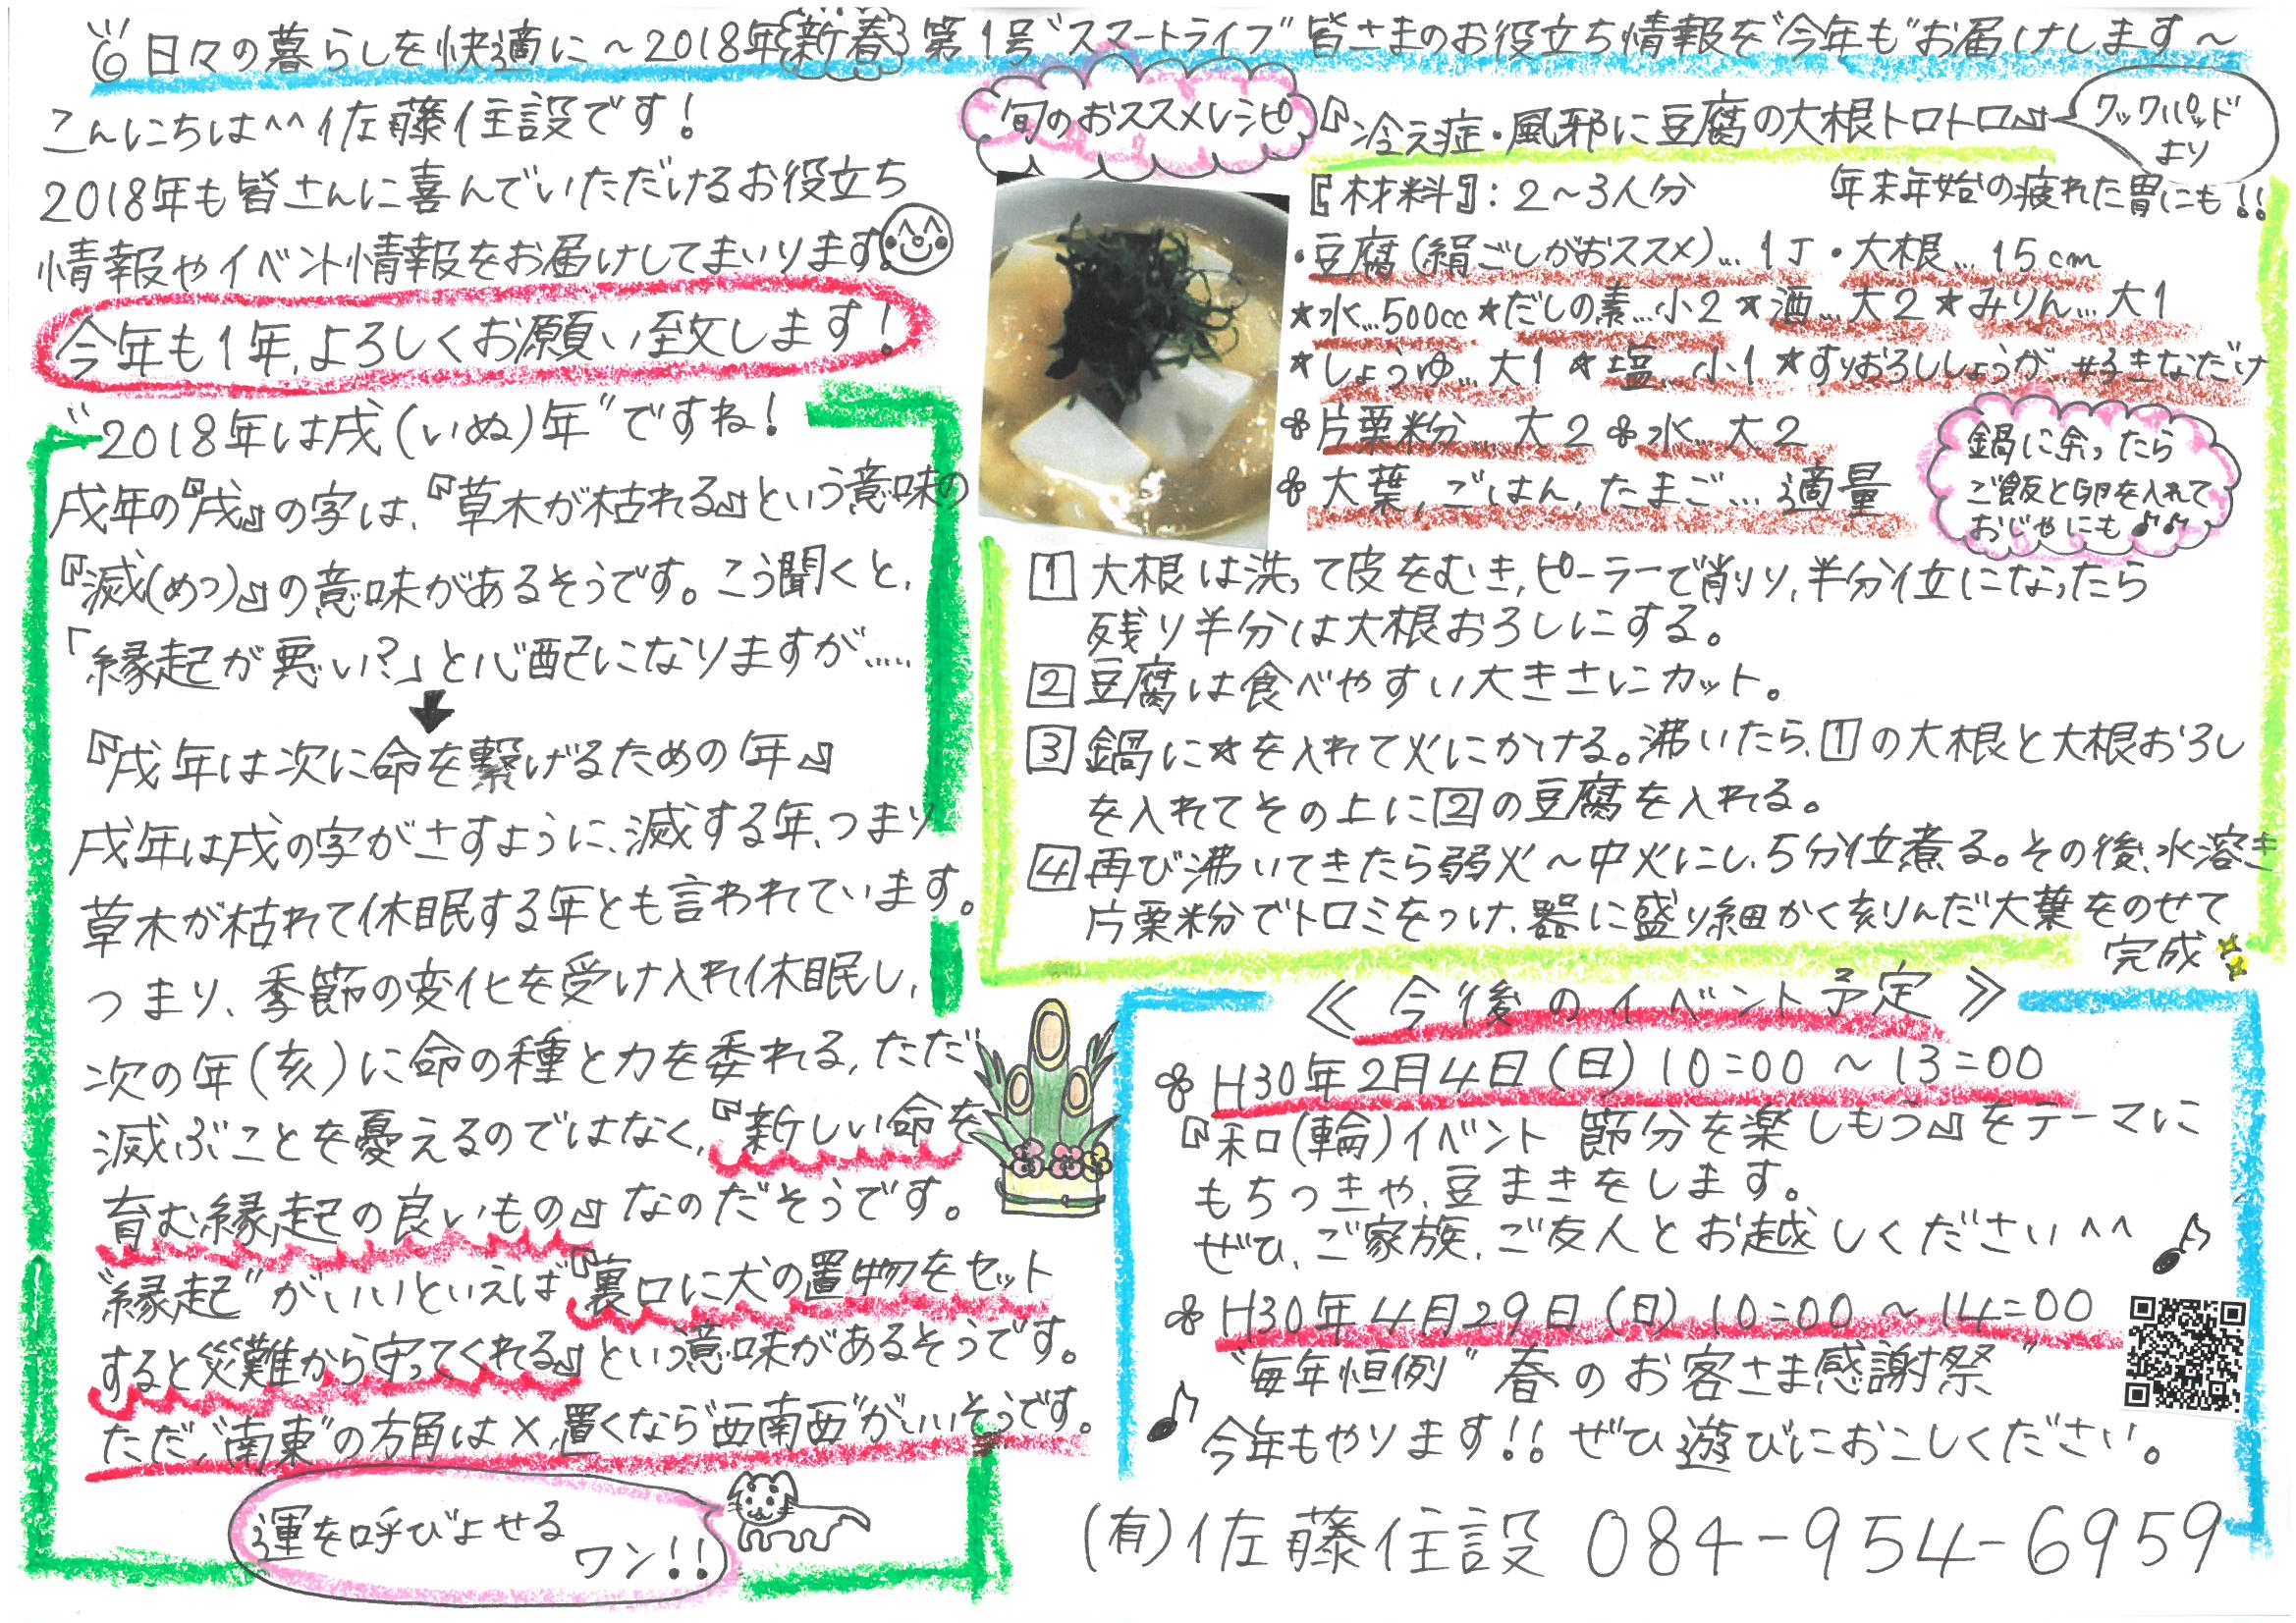 日々の暮らしを快適に～2018年新春第1号"スマートライフ"皆さまのお役立ち情報を"今年も"お届けします～
こんにちは^^佐藤住設です！
2018年も皆さんに喜んでいただけるお役立ち
情報やイベント情報をお届けしてまいります。
今年も1年、よろしくお願い致します！
"2018年は戌(いぬ)年"ですね！
戌年の『戌』の字は、『草木が枯れる』という意味の
『滅(めつ)』の意味があるそうです。こう聞くと、
「縁起が悪い？」と心配になりますが……
『戌年は次に命を繋げるための年』
戌年は戌の字がさすように、滅する年、つまり
草木が枯れて休眠する年とも言われています。
つまり、季節の変化を受け入れ休眠し、
次の年(亥)に命の種と力を委れる、ただ
滅ぶことを憂えるのではなく、『新しい命を
育む縁起の良いもの』なのだそうです。
"縁起"がいいといえば『裏口に犬の置物をセット
すると災難から守ってくれる』という意味があるそうです。
ただ、"南東"の方角は×、置くなら"西南西"がいいそうです。
運を呼びよせる
ワン！！
旬のおススメレシピ
『冷え症・風邪に豆腐の大根トロトロ』
クックパッド
より
『材料』：2～3人分 年末年始の疲れた胃にも！！
・豆腐(絹ごしがおススメ)…1丁 ・大根…15cm
★水…500cc ★だしの素…小2 ★酒…大2 ★みりん…大1
★しょうゆ…大1 ★塩…小1 ★すりおろししょうが…好きなだけ
✽片栗粉…大2 ✽水…大2
✽大葉、ごはん、たまご…適量
鍋に余ったら
ご飯と卵を入れて
おじやにも♪♪
1 大根は洗って皮をむき、ピーラーで削り、半分位になったら
残り半分は大根おろしにする。
2 豆腐は食べやすい大きさにカット。
3 鍋に★を入れて火にかける。沸いたら、1の大根と大根おろし
を入れてその上に2の豆腐を入れる。
4 再び沸いてきたら弱火～中火にし、5分位煮る。その後、水溶き
片栗粉でトロミをつけ、器に盛り細かく刻んだ大葉をのせて
完成
≪今後のイベント予定≫
✽H30年2月4日(日)10:00～13:00
『和(輪)イベント 節分を楽しもう』をテーマに
もちつきや、豆まきをします。
ぜひ、ご家族、ご友人とお越しください^^♪
✽H30年4月29日(日)10:00～14:00
"毎年恒例"春のお客さま感謝祭"
♪今年もやります！！ぜひ遊びにおこしください。
(有)佐藤住設 084-954-6959